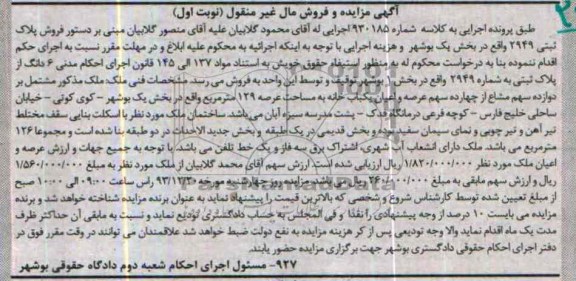 آگهی مزایده و فروش مال غیر منقول (نوبت اول)
طبق پرونده اجرایی به کلاسه شماره ۹۳۰۱۸۵ اجرایی له آقای محمود گلابیان علیه آقای منصور گلابیان مبنی بر دستور فروش پلاک
ثبتی ۲۹۴۹ واقع در بخش یک بوشهر و هزینه اجرایی با توجه به اینکه اجرائیه به محکوم علیه ابلاغ و در مهلت مقرر نسبت به اجرای حکم
اقدام ننموده بنا به درخواست محکوم له به منظور استیفاء حقوق خویش به استناد مواد ۱۳۷ الی ۱۴۵ قانون اجرای احکام مدنی ۶ دانگ از
پلاک ثبتی به شماره ۲۹۴۹ واقع در بخش توقیف و توسط این واحد به فروش می رسد. مشخصات فنی ملک: ملک مذکور مشتمل بر
دوازده سهم مشاع از چهارده سهم عرصه و اعیان یکباب خانه به مساحت عرصه ۱۲۹ مترمربع واقع در بخش یک بوشهر - کوی کوتی - خیابان
ساحلی خلیج فارس - کوچه فرعی درمانگاه فدک - پشت مدرسه سبزه آبان می باشد. ساختمان ملک مورد نظر با اسکلت بنایی سقف مختلط
تیر آهن و تیر چوبی و نمای سیمان سفید بوده و بخش قدیمی در یک طبقه و بخش جدید الاحداث در دو طبقه بنا شده است و مجموعا ۱۲۶
مترمربع می باشد. ملک دارای انشعاب آب شهری، اشتراک برق سه فاز و یک خط تلفن می باشد. با توجه به جمیع جهات و ارزش عرصه و
اعیان ملک مورد نظر ۱/۸۲۰/۰۰۰/۰۰۰ ریال ارزیابی شده است ارزش سهم آقای محمد گلابیان از ملک مورد نظر به مبلغ ۱/۵۶۰/۰۰۰/۰۰۰
ریال و ارزش سهم مابقی به مبلغ ۲۶۰/۰۰۰/۰۰۰ ریال می باشد. مزایده روز چهارشنبه مورخه راس ساعت ۰۹:۰۰ الی ۱۰:۰۰ صبح
از مبلغ تعیین شده توسط کارشناس شروع و شخصی که بالاترین قیمت را پیشنهاد نماید به عنوان برنده مزایده شناخته خواهد شد و برنده
مزایده می بایست ۱۰ درصد از وجه پیشنهادی را نقدا و فی المجلس به حساب دادگستری تودیع نماید و نسبت به مابقی آن حداکثر ظرف
مدت یک ماه اقدام نماید والا وجه تودیعی پس از کر هزینه مزایده به نفع دولت ضبط خواهد شد علاقمندان می توانند در وقت مقرر فوق در
دفتر اجرای احکام حقوقی دادگستری بوشهر جهت برگزاری مزایده حضور یابند.
۹۲۷- مسئول اجرای احکام شعبه دوم دادگاه حقوقی بوشهر